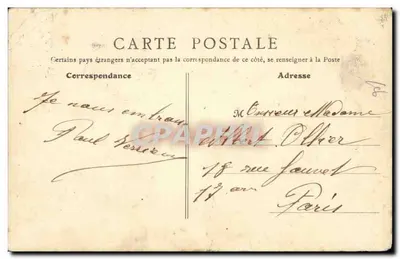 CARTE POSTALE
Certains pays étrangers n'acceptant pas la correspondance de ce côté, se renseigner à la Poste
Correspondance
Adresse
Je vous
Paul
Monsieur Madame
Albert Ollier
18 rue Sauvet
17 arr
Paris
CPAPHIL